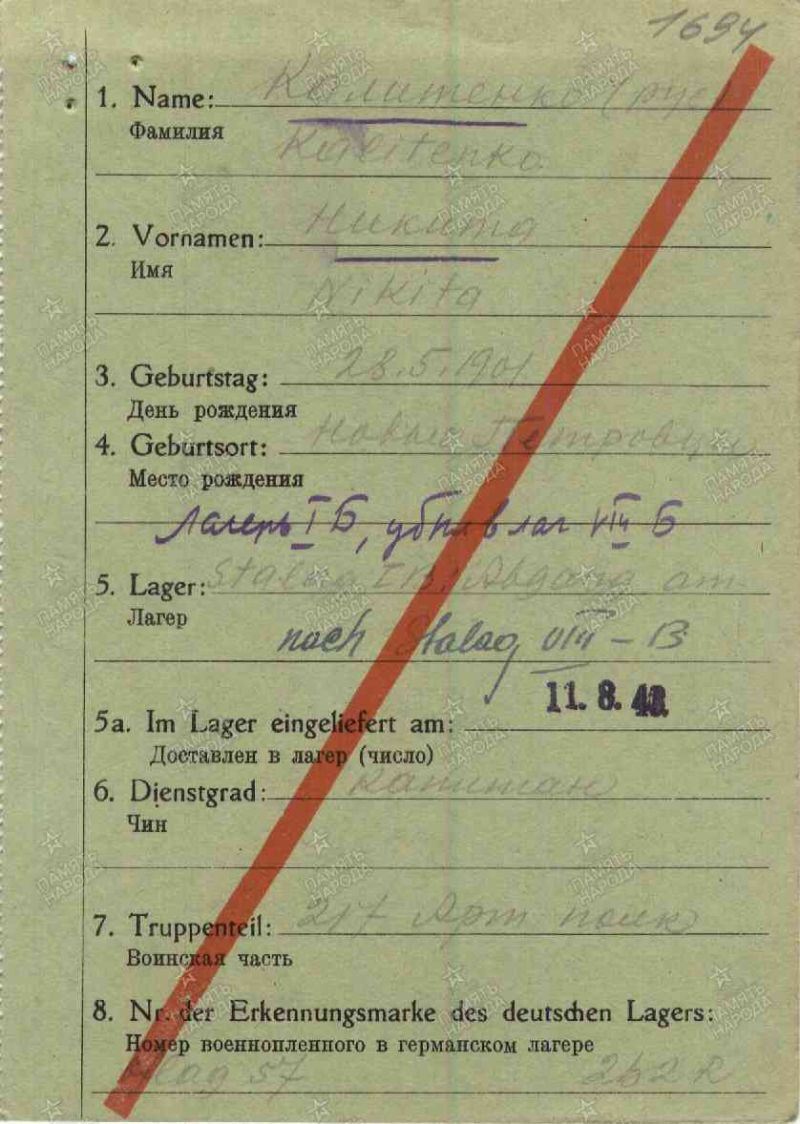 1694
1. Name: Калитенко (рус)
Фамилия
Kalitenko
2. Vornamen: Никита
Имя
Nikita
3. Geburtstag: 28.5.1901
День рождения
4. Geburtsort: Новые Петровцы
Место рождения
Лагерь I Б, убыл в лаг VIII Б
5. Lager: Stalag I B. Abgang am
Лагер
nach Stalag VIII - B
11. 8. 43.
5a. Im Lager eingeliefert am:
Доставлен в лагер (число)
6. Dienstgrad: капитан
Чин
7. Truppenteil: 217 Арт полк
Воинская часть
8. Nr. der Erkennungsmarke des deutschen Lagers:
Номер военнопленного в германском лагере
57